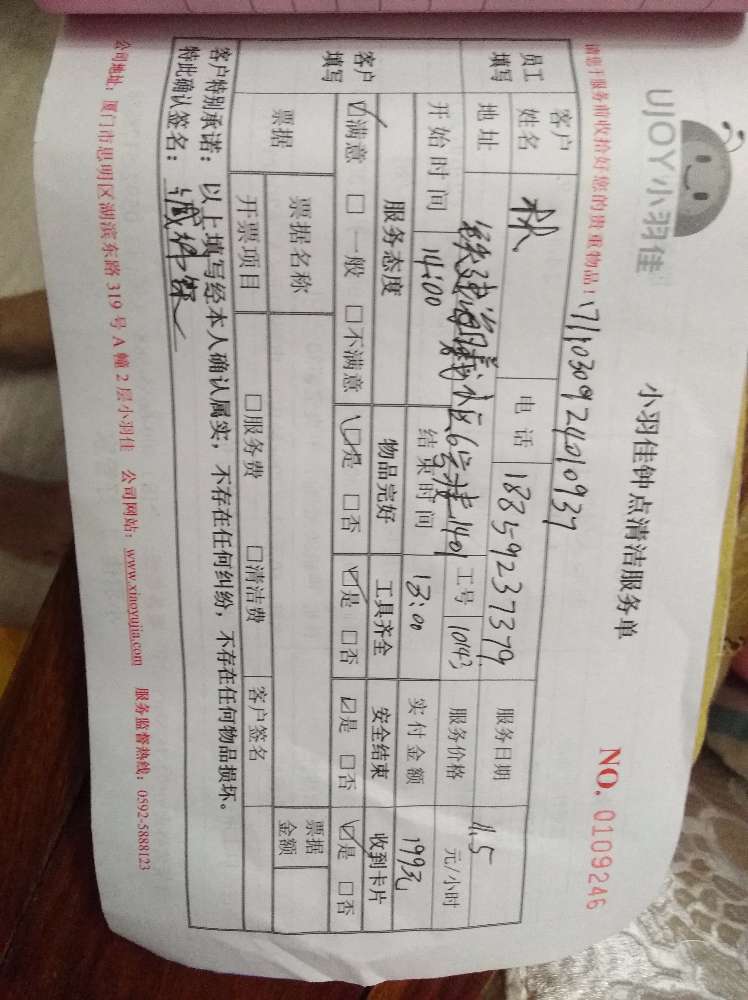 UJOY小羽佳
小羽佳钟点清洁服务单
NO. 0109246
请您于服务前收拾好您的贵重物品!
171103092401093
员工填写
客户姓名
林
电话 18859237379
服务日期 11.5
地址
小区6号楼1401
工号 10143
服务价格 元/小时
开始时间 14:00
结束时间 18:00
实付金额 199元
客户填写
服务态度 物品完好 工具齐全 安全结束 收到卡片
☑满意 □一般 □不满意 ☑是 □否 ☑是 □否 ☑是 □否 ☑是 □否
票据 票据名称 票据金额
开票项目 □服务费 □清洁费 客户签名
客户特别承诺:以上填写经本人确认属实,不存在任何纠纷,不存在任何物品损坏。
特此确认签名:
公司地址:厦门市思明区湖滨东路319号A幢2层小羽佳 公司网站:www.xiaoyujia.com 服务监督热线:0592-5888123